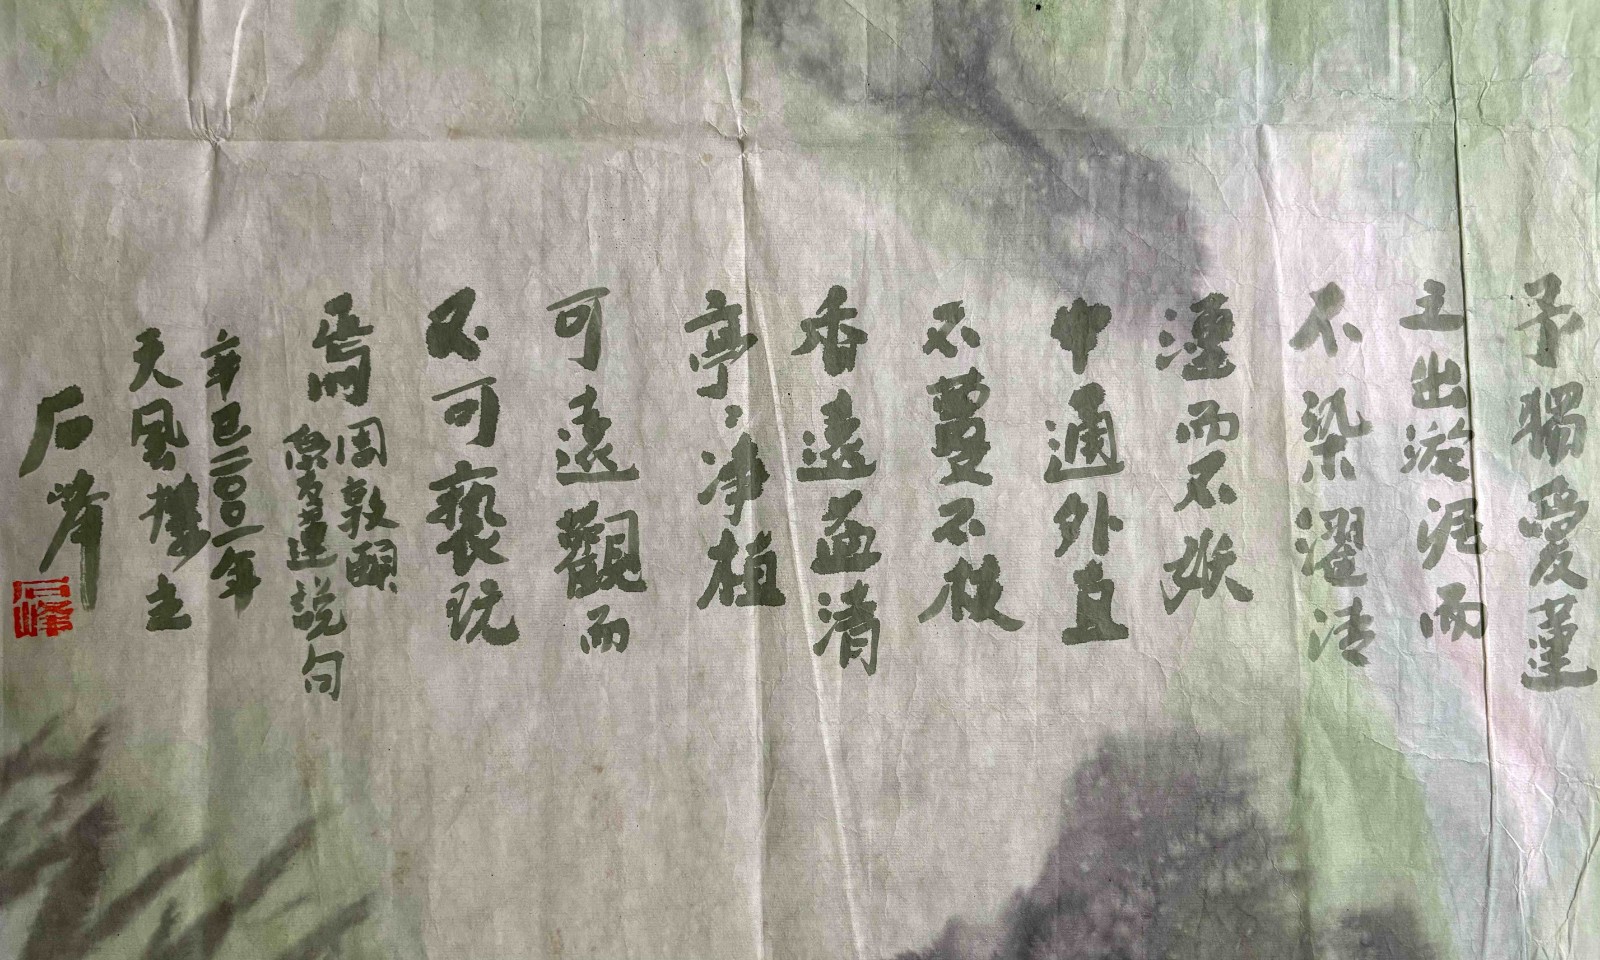 予獨愛蓮
之出淤泥而
不染濯清
漣而不妖
中通外直
不蔓不枝
香遠益清
亭〻淨植
可遠觀而
不可褻玩
焉
周敦頤
愛蓮說句
辛巳二〇〇一年
天風樓主
石峰
石峰